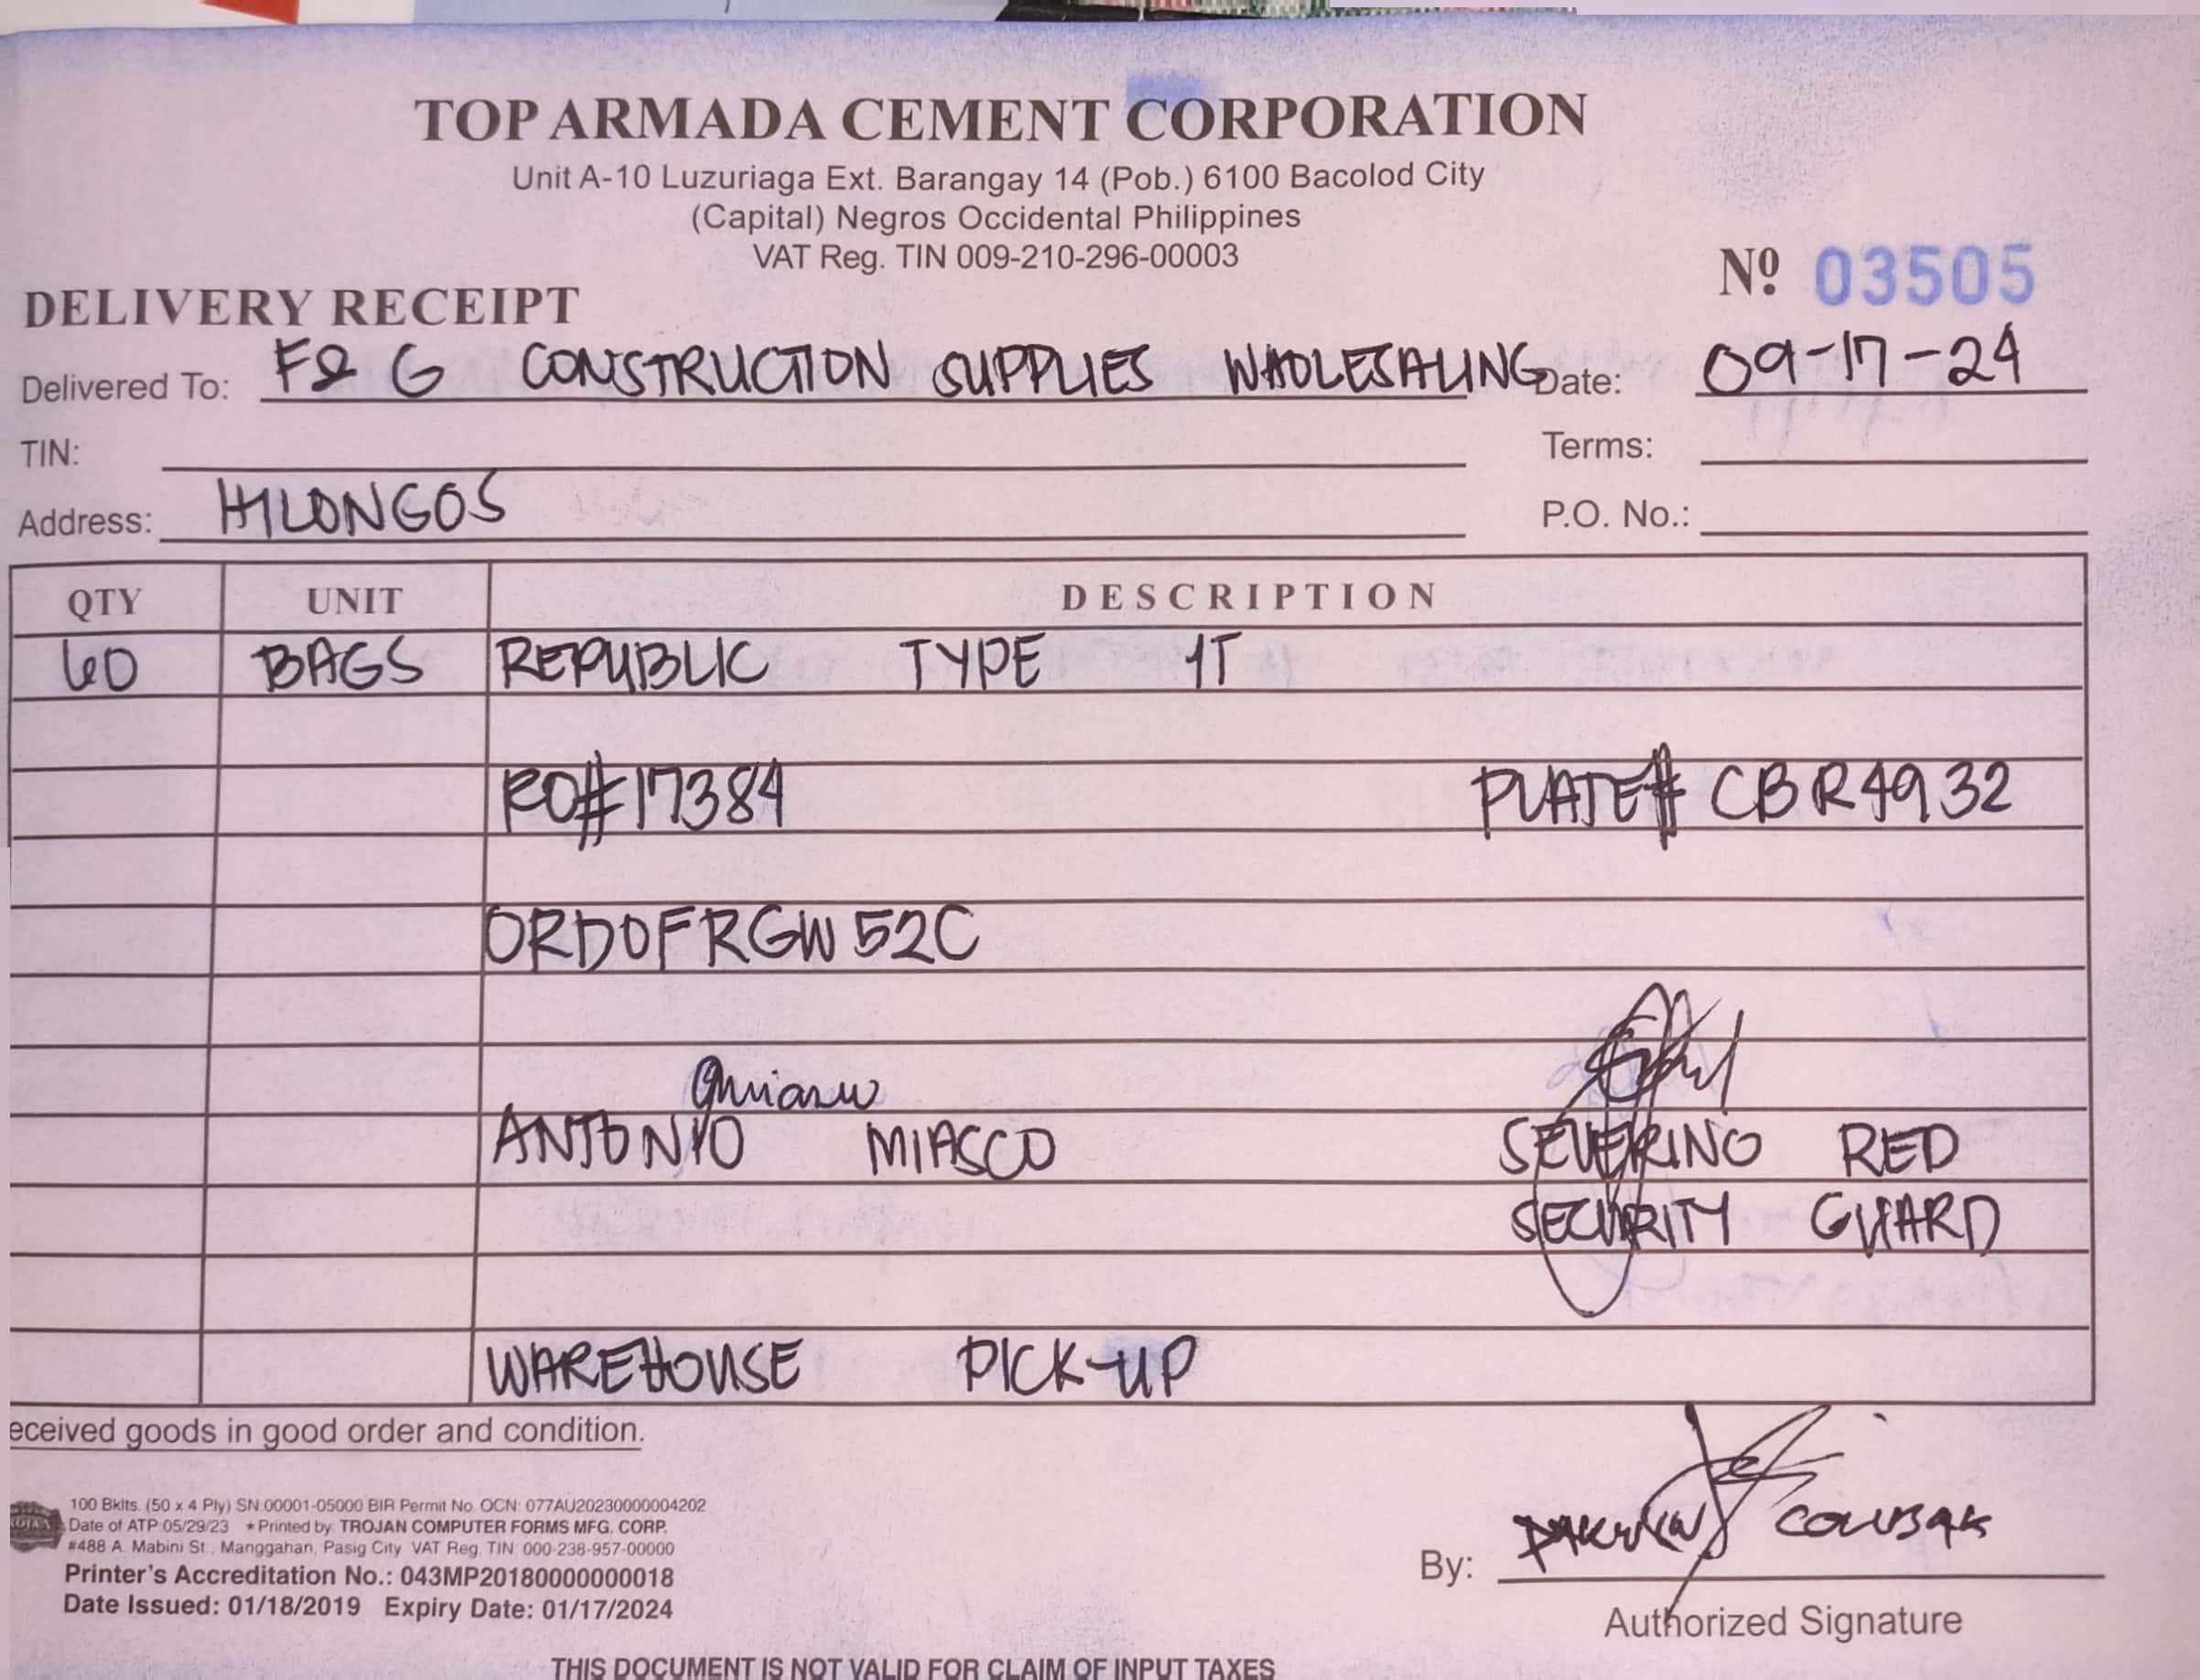 TOP ARMADA CEMENT CORPORATION
Unit A-10 Luzuriaga Ext. Barangay 14 (Pob.) 6100 Bacolod City
(Capital) Negros Occidental Philippines
VAT Reg. TIN 009-210-296-00003
Nº 03505
DELIVERY RECEIPT
Delivered To: F& G CONSTRUCTION SUPPLIES WHOLESALING Date: 09-17-24
TIN: Terms:
Address: HILONGOS P.O. No.:
QTY UNIT DESCRIPTION
60 BAGS REPUBLIC TYPE 1T
RO#17384 PLATE# CBR4932
ORDOFRGW52C
ANTONIO MIASCO SEVERINO RED
SECURITY GUARD
WAREHOUSE PICK-UP
eceived goods in good order and condition.
100 Bklts. (50 x 4 Ply) SN:00001-05000 BIR Permit No. OCN: 077AU20230000004202
Date of ATP:05/29/23 ★Printed by: TROJAN COMPUTER FORMS MFG. CORP.
#488 A. Mabini St., Manggahan, Pasig City VAT Reg. TIN: 000-238-957-00000
Printer's Accreditation No.: 043MP20180000000018
Date Issued: 01/18/2019 Expiry Date: 01/17/2024
By:
Authorized Signature
THIS DOCUMENT IS NOT VALID FOR CLAIM OF INPUT TAXES